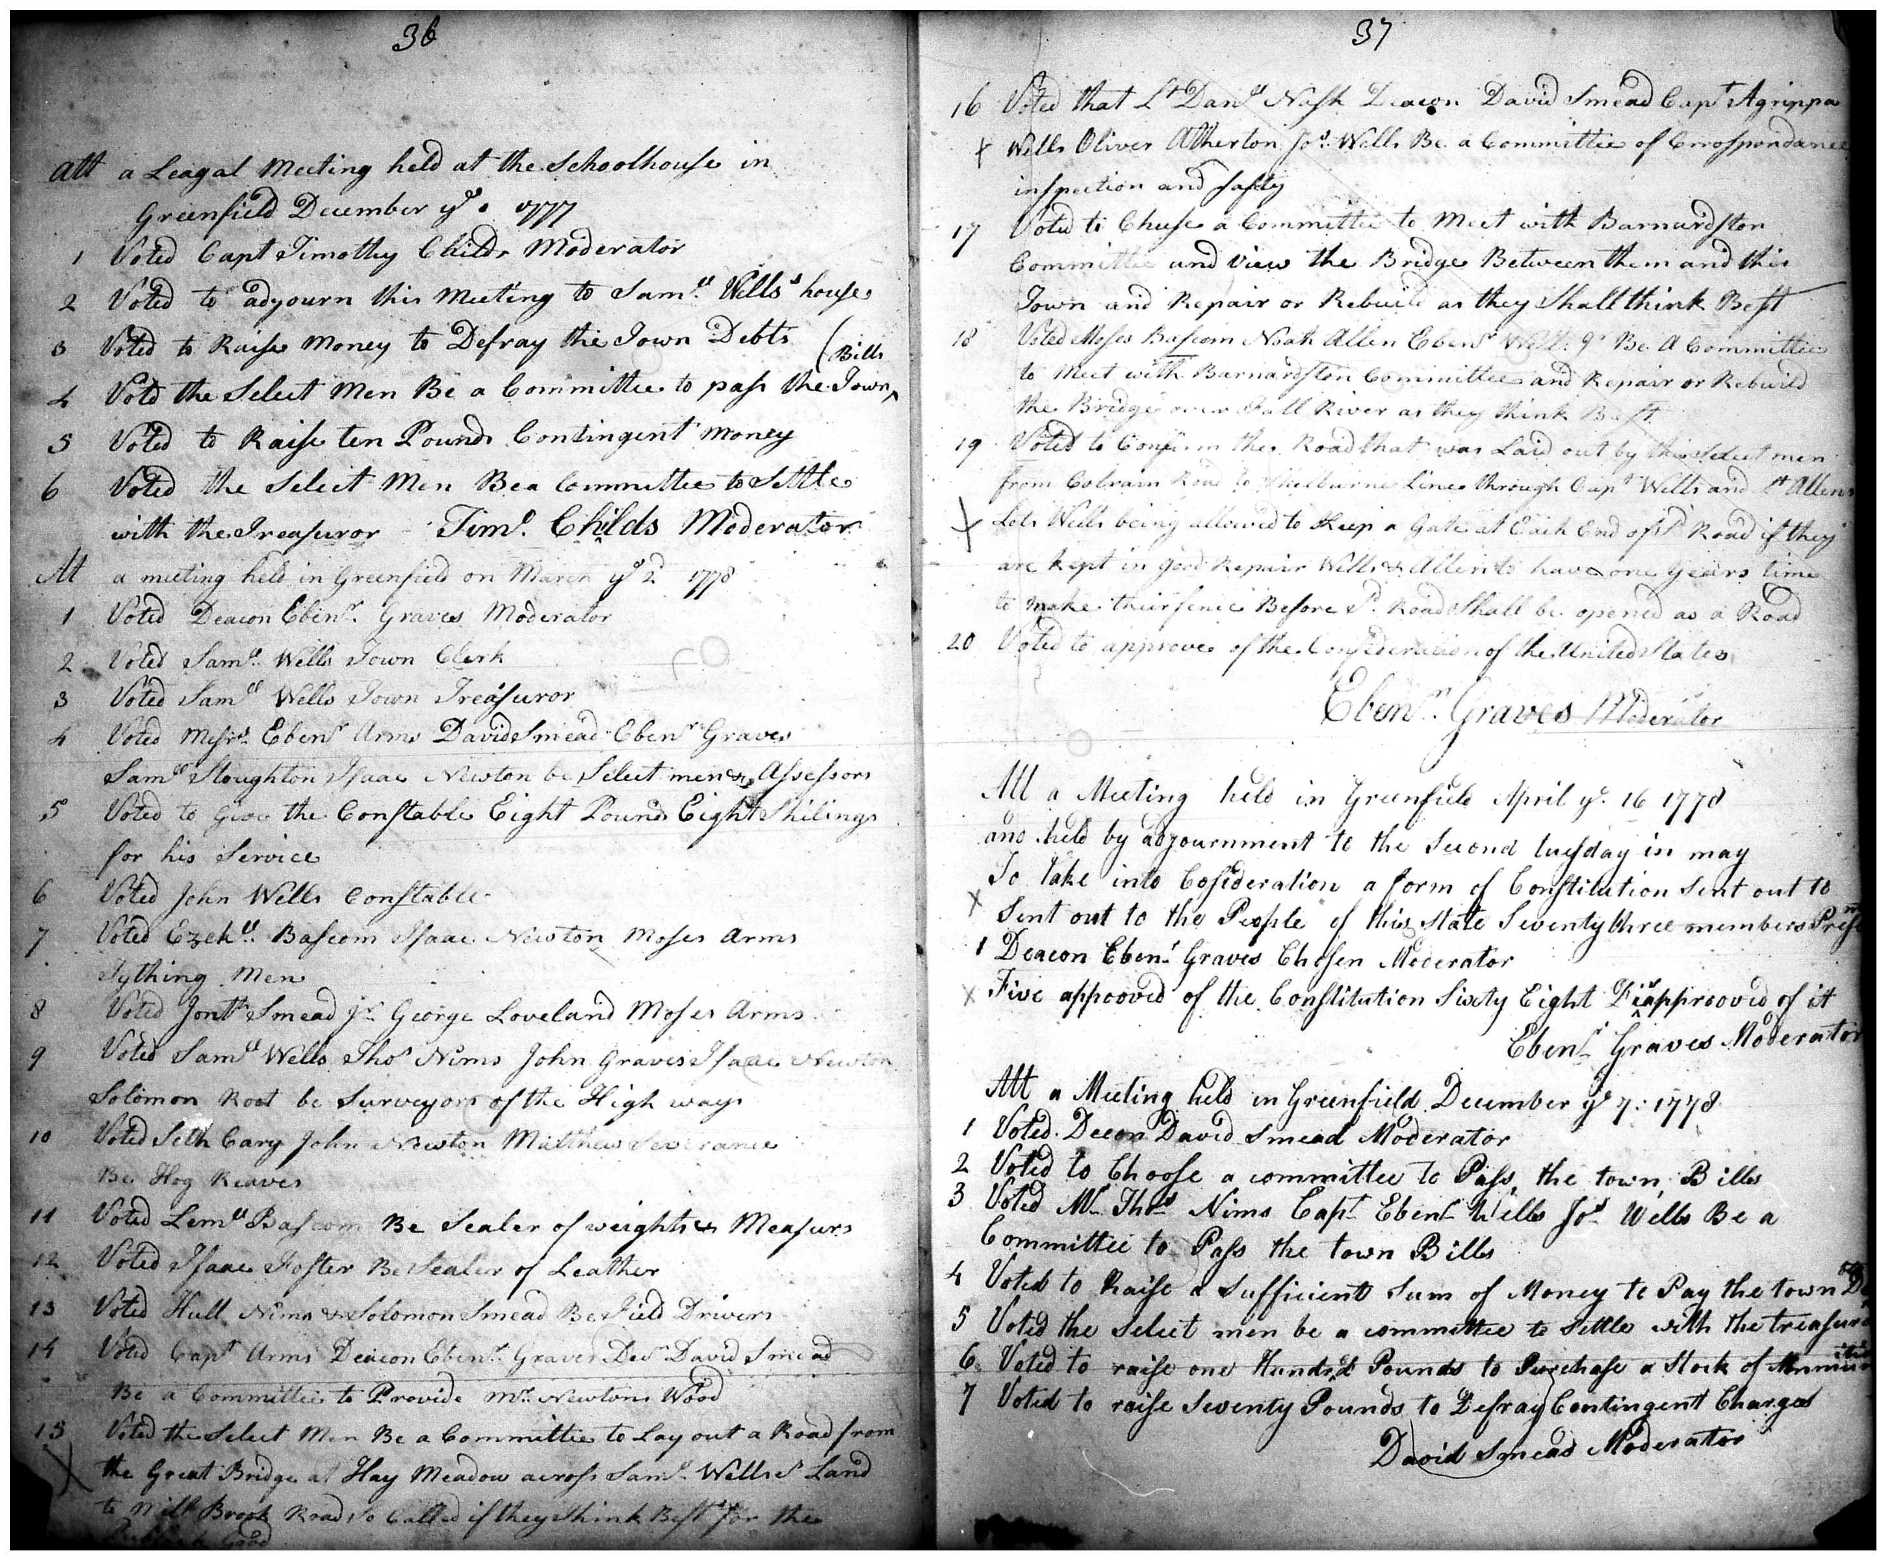 36
Att a Leagal Meeting held at the Schoolhouse in
Greenfield December ye 1777
1 Voted Capt Timothy Childs Moderator
2 Voted to adjourn this Meeting to Samll Wells's house
3 Voted to Raise Money to Defray the Town Debts
(Bills
4 Votd the Select Men Be a Committee to pass the Town^
5 Voted to Raise ten Pounds Contingent money
6 Voted the Select Men Be a Committee to Settle
with the Treasuror Timo. Childs Moderator
At a meeting held in Greenfield on March ye 2d 1778
1 Voted Deacon Ebenr. Graves Moderator
2 Voted Samll. Wells Town Clerk
3 Voted Samll Wells Town Treasuror
4 Voted Messrs. Ebenr Arms David Smead Ebenr Graves
Samll Stoughton Isaac Newton be Select men & Assessors
5 Voted to Give the Constable Eight Pounds Eight Shilings
for his Service
6 Voted John Wells Constable
7 Voted Ezekll. Bascom Isaac Newton Moses Arms
Tything Men
8 Voted Jonth Smead jr. George Loveland Moses Arms
9 Voted Samll Wells Thos Nims John Graves Isaac Newton
Solomon Root be Surveyors of the High ways
10 Voted Seth Cary John Newton Matthew Severance
Be Hog Reaves
11 Voted Lemll Bascom Be Sealer of weights & Measurs
12 Voted Isaac Foster Be Sealer of Leather
13 Voted Hull Nims & Solomon Smead Be Field Drivers
14 Voted Capt Arms Deacon Ebenr. Graves Den David Smead
Be a Committee to Provide Mr. Newtons Wood
15 Voted the Select Men Be a Committee to Lay out a Road from
the Great Bridge at Hay Meadow across Samll. Wells's Land
to Mill Brook Road so Called if they think Best for the
Publick Good
37
16 Voted that Lt Danll Nash Deacon David Smead Capt Agrippa
Wells Oliver Atherton Jos. Wells Be a Committee of Corrospondance
inspection and safty
17 Voted to Chuse a Committee to Meet with Barnardston
Committee and view the Bridge Between them and this
Town and Repair or Rebuild as they Shall think Best
18 Voted Moses Bascom Noah Allen Ebenr Wells Be A Committee
to Meet with Barnardston Committee and Repair or Rebuild
the Bridge over Fall River as they think Best
19 Voted to Confirm the Road that was Laid out by the Select men
from Colrain Road to Shelburne Line through Capt Wells and Lt Allens
Lots Wells being allowed to Keep a Gate at Each End of sd Road if they
are kept in good Repair Wells & Allen to have one years time
to make their fence Before sd. Road Shall be opened as a Road
20 Voted to approve of the Confederation of the United States
Ebenr. Graves Moderator
Att a Meeting held in Greenfield April ye. 16 1778
and held by adjournment to the Second tuesday in may
To take into Cosideration a form of Constitution Sent out to
Sent out to the People of this State Seventy three members Present
1 Deacon Ebenr Graves Chosen Moderator
Five approovd of the Constitution Sixty Eight Disapproovd of it
Ebenr Graves Moderator
Att a Meeting held in Greenfield December ye 7: 1778
1 Voted Decon David Smead Moderator
2 Voted to Choose a committee to Pass the town Bills
3 Voted Mr Thos Nims Capt Ebenr Wells Jos Wells Be a
Committee to Pass the town Bills
4 Voted to Raise a Sufficient Sum of Money to Pay the town
5 Voted the Select men be a committee to Settle with the treasuror
6 Voted to raise one Hundrd Pounds to Purchase a Stock of Ammunition
7 Voted to raise Seventy Pounds to Defray Contingent Charges
David Smead Moderator